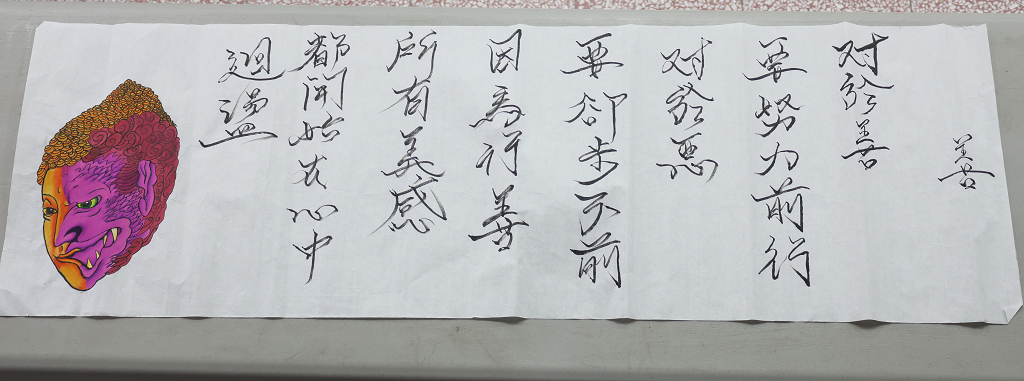 善
对發善
要努力前行
对發惡
要卻步不前
因為行善
所有美感
都開始在心中
迴盪